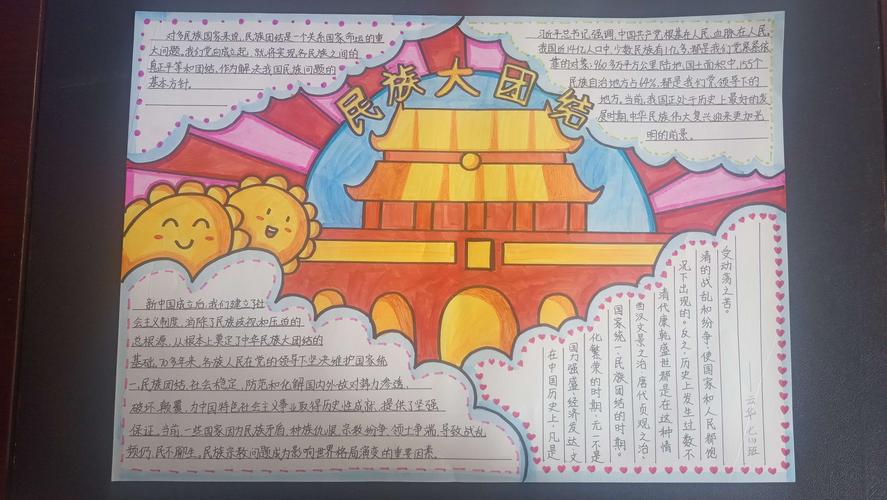 民族大团结
对多民族国家来说，民族团结是一个关系国家命运的重
大问题。我们党成立起，就将实现各民族之间的
真正平等和团结，作为解决我国民族问题的
基本方针。
习近平总书记强调，中国共产党根基在人民、血脉在人民。
我国近14亿人口中，少数民族有1亿多，都是我们党紧紧依
靠的对象；960多万平方公里陆地，国土面积中，155个
民族自治地方占64%，都是我们党领导下的
地方。当前，我国正处于历史上最好的发
展时期，中华民族伟大复兴迎来更加光
明的前景。
新中国成立后，我们建立了社
会主义制度，消除了民族歧视和压迫的
总根源，从根本上奠定了中华民族大团结的
基础。70多年来，各族人民在党的领导下坚决维护国家统
一、民族团结、社会稳定，防范和化解国内外敌对势力渗透、
破坏、颠覆，为中国特色社会主义事业取得历史性成就，提供了坚强
保证。当前，一些国家因为民族矛盾、种族仇恨、宗教纷争、领土争端，导致战乱
频仍，民不聊生。民族宗教问题成为影响世界格局演变的重要因素。
云华 七(1)班
受动荡之苦。
清的战乱和纷争，使国家和人民都饱
况下出现的。反之，历史上发生过数不
清代康乾盛世都是在这种情
西汉文景之治、唐代贞观之治、
国家统一、民族团结的时期。
化繁荣的时期，无一不是
国力强盛、经济发达、文
在中国历史上，凡是